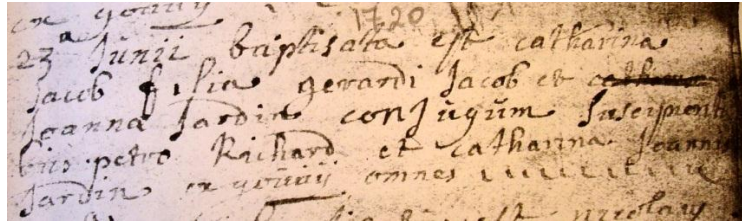 ex gouvij 1720
23a Junii baptisata est catharina
Jacob filia gerardi Jacob et catharina
Joanna Jardin conjugum suscipienti
bus petro Richard et catharina Joannis
Jardin ex gouvij omnes
est nicolaus